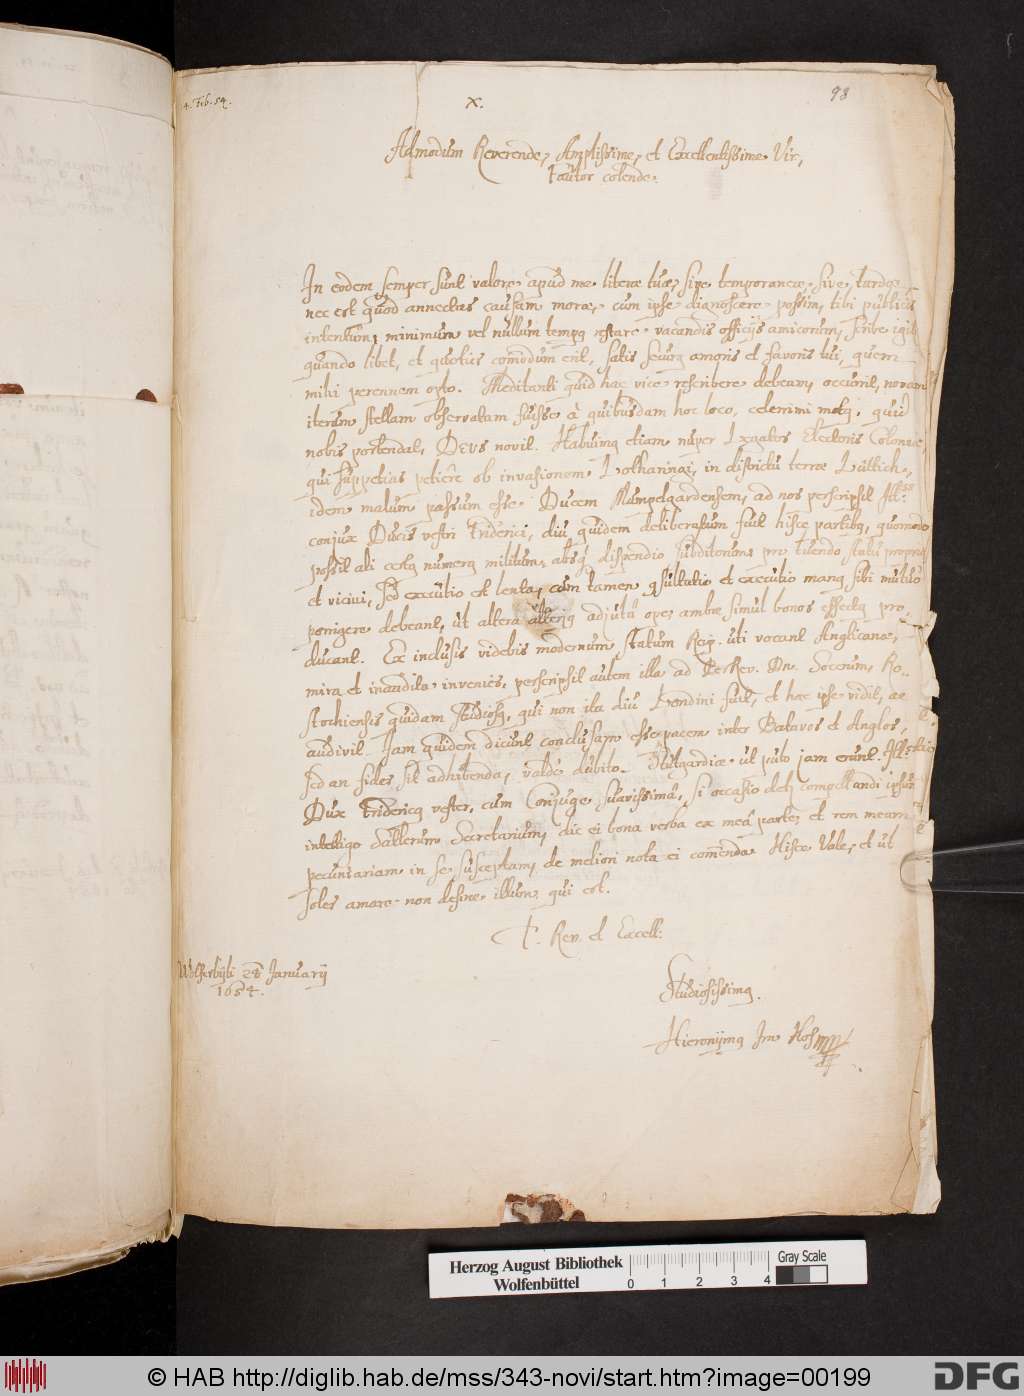 4. Feb. 54.
X.
98
Admodum Reverende, Amplissime, et Excellentissime Vir,
Fautor colende.
In eodem semper sunt valore apud me literæ tuæ, sive temporaneæ, sive tardæ,
nec est quod annectas causam moræ, cum ipse dignoscere possim, tibi publicis
intento, minimum vel nullum tempus restare vacandis officijs amicorum, scribe igitur
quando libet, et quoties commodum erit, satis securus amoris et favoris tui, quem
mihi perennem opto. Meditanti quid hac vice rescribere debeam, occurrit, novam
iterum stellam observatam fuisse à quibusdam hoc loco, celerrimi motus, quid
nobis portendat, DEUS novit. Habuimus etiam nuper Legatos Electoris Coloniæ,
qui suppetias petiêre ob invasionem Lotharingi, in districtu terræ Lüttich,
idem malum passum esse Ducem Mumpelgardensem, ad nos perscripsit Illss
conjux Ducis vestri Friderici, diu quidem deliberatum fuit hisce partibus, quomodo
possit ali certus numerus militum, absque dispendio subditorum, pro tuendo statu proprio
et vicini, sed executio est lenta, cum tamen consultatio et executio manus sibi mutuò
porrigere debeant, ut altera alterius adjuta ope, ambæ simul bonos effectus pro-
ducant. Ex inclusis videbis modernum statum Reip. uti vocant Anglicanæ,
mira et inaudita invenies, perscripsit autem illa ad Rev. Dn. Socerum, Ro-
stochiensis quidam studiosus, qui non ita diu Londini fuit, et hæc ipse vidit, ac
audivit. Jam quidem dicunt conclusam esse pacem inter Batavos et Anglos,
sed an fides sit adhibenda, valdè dubito. Stutgardiæ ut puto jam erunt Illss
Dux Fridericus vester, cum Conjuge suavissimâ, si occasio del compellandi ipsum
intelligo Secretarium, dic ei bona verba ex meâ parte, et rem meam
pecuniariam in se susceptam, de meliori nota ei commenda. Hisce Vale, et ut
soles amare non desine illum, qui est.
T. Rev. et Excell:
Wolferbyti 28 Januarij
1654.
Studiosissimus.
Hieronymus Im Hof
Herzog August Bibliothek
Wolfenbüttel
0 1 2 3 4
Gray Scale
© HAB http://diglib.hab.de/mss/343-novi/start.htm?image=00199
DFG